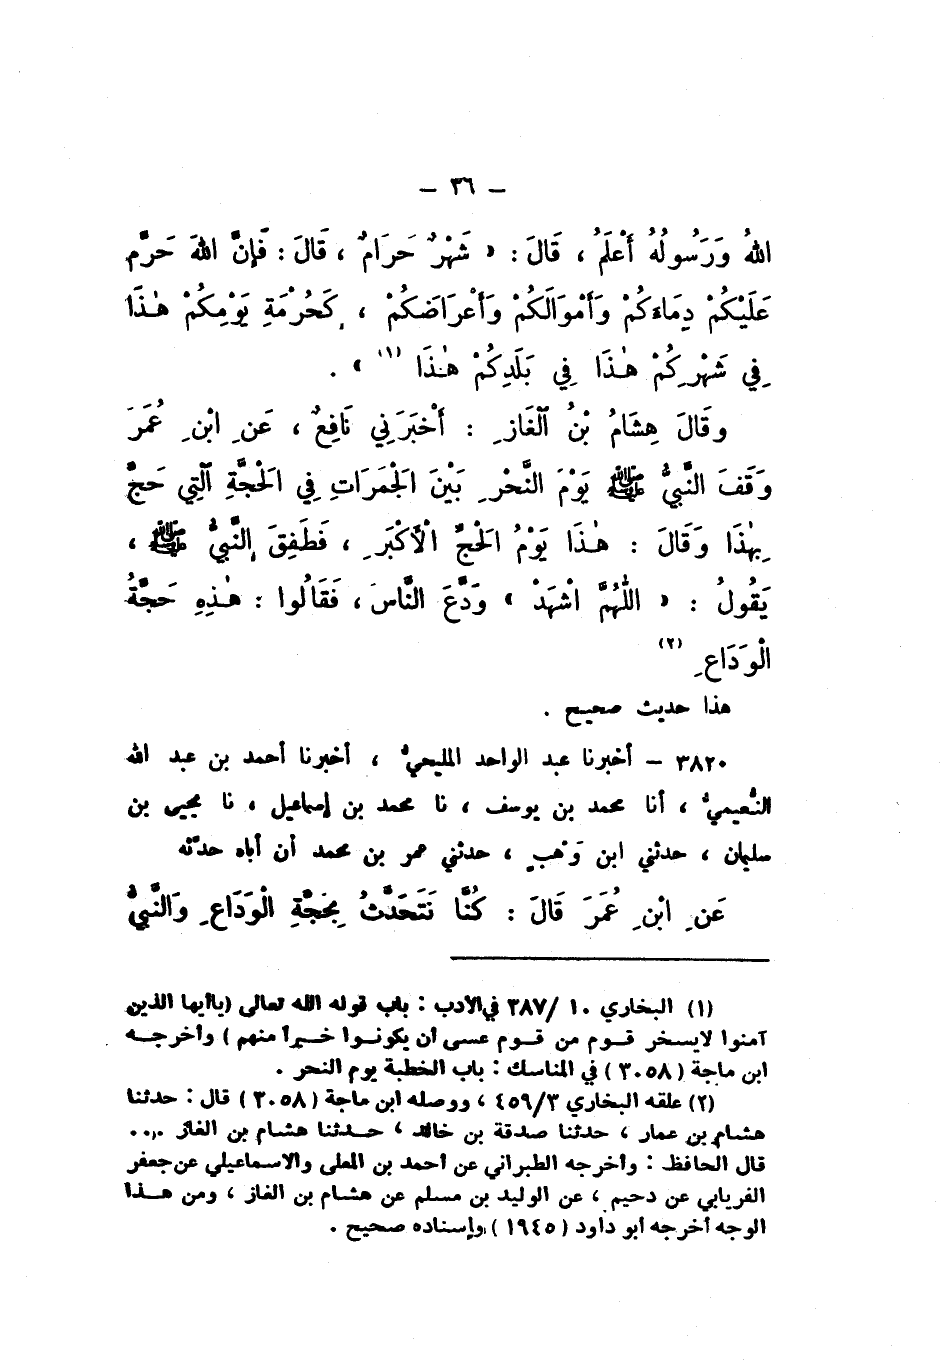 — ٣٦ —
اللهُ وَرَسُولُهُ أَعْلَمُ ، قَالَ : « شَهْرٌ حَرَامٌ ، قَالَ : فَإِنَّ اللهَ حَرَّمَ
عَلَيْكُمْ دِمَاءَكُمْ وَأَمْوَالَكُمْ وَأَعْرَاضَكُمْ ، كَحُرْمَةِ يَوْمِكُمْ هٰذَا
فِي شَهْرِكُمْ هٰذَا فِي بَلَدِكُمْ هٰذَا (١) » .
وقَالَ هِشَامُ بْنُ ٱلْغَازِ : أَخْبَرَنِي نَافِعٌ ، عَنِ ابْنِ عُمَرَ
وَقَفَ النَّبِيُّ ﷺ يَوْمَ النَّحْرِ بَيْنَ الْجَمَرَاتِ فِي الْحَجَّةِ ٱلَّتِي حَجَّ
بِهٰذَا وَقَالَ : هٰذَا يَوْمُ الْحَجِّ الْأَكْبَرِ ، فَطَفِقَ النَّبِيُّ ﷺ ،
يَقُولُ : « اللّٰهُمَّ اشْهَدْ » وَدَّعَ النَّاسَ ، فَقَالُوا : هٰذِهِ حَجَّةُ
الْوَدَاعِ (٢)
هذا حديث صحيح .
٣٨٢٠ – أخبرنا عبد الواحد المليحيُّ ، أخبرنا أحمد بن عبد الله
النُّعيميُّ ، أنا محمد بن يوسف ، نا محمد بن إسماعيل ، نا يحيى بن
سليمان ، حدثني ابن وَهْبٍ ، حدثني عمر بن محمد أن أباه حدَّثه
عَنِ ابْنِ عُمَرَ قَالَ : كُنَّا نَتَحَدَّثُ بِحَجَّةِ الْوَدَاعِ وَالنَّبِيُّ
(١) البخاري ١٠ /٣٨٧ في الأدب : باب قوله الله تعالى (ياأيها الذين
آمنوا لايسخر قوم من قوم عسى أن يكونوا خيراً منهم ) وأخرجه
ابن ماجة (٣٠٥٨ ) في المناسك : باب الخطبة يوم النحر .
(٢) علقه البخاري ٤٥٩/٣ ، ووصله ابن ماجة (٣٠٥٨ ) قال : حدثنا
هشام بن عمار ، حدثنا صدقة بن خالد ، حدثنا هشام بن الغاز ....
قال الحافظ : وأخرجه الطبراني عن أحمد بن المعلى والاسماعيلي عن جعفر
الفريابي عن دحيم ، عن الوليد بن مسلم عن هشام بن الغاز ، ومن هذا
الوجه أخرجه أبو داود (١٩٤٥ ) وإسناده صحيح .